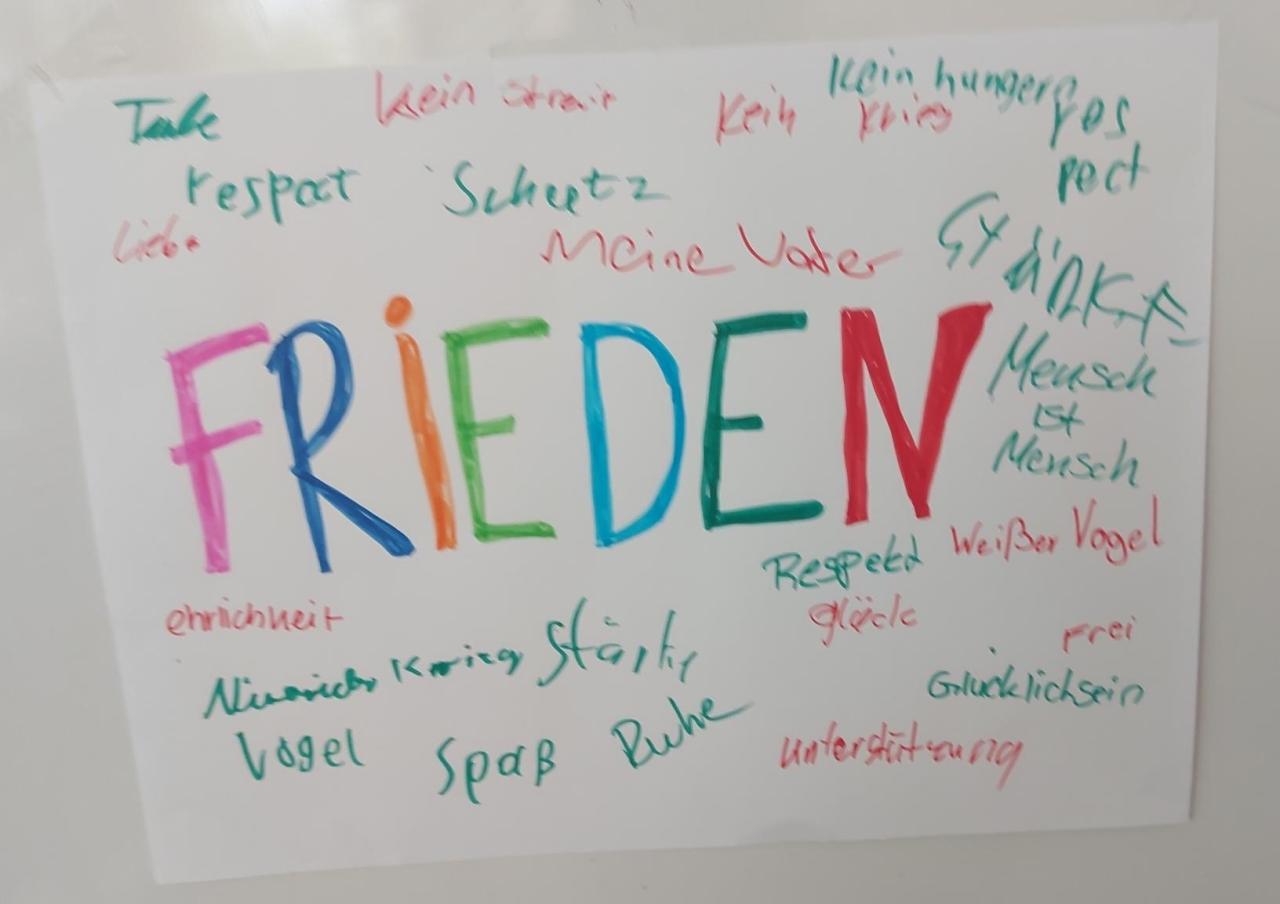 Kein hungern
Taube
Kein Streit
Kein Krieg
res
pect
respect
Schutz
Liebe
Meine Vater
STÄRKE
FRiEDEN
Mensch
ist
Mensch
Weißer Vogel
Respekt
ehrlichkeit
glück
Frei
Krieg
Stärke
Glücklichsein
Vogel
Spaß
Ruhe
unterstützung